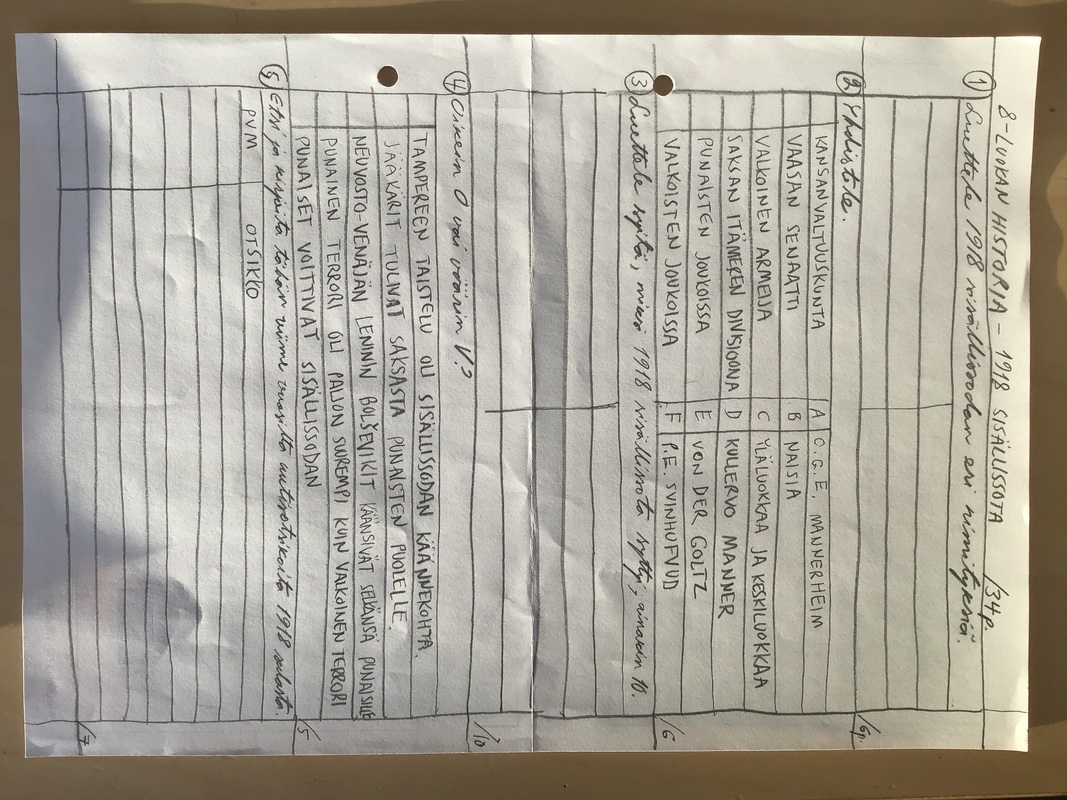 8-LUOKAN HISTORIA - 1918 SISÄLLISSOTA /34p.
① Luettele 1918 sisällissodan eri nimityksiä.
/6p.
② Yhdistele.
KANSANVALTUUSKUNTA A C.G.E. MANNERHEIM
VAASAN SENAATTI B NAISIA
VALKOINEN ARMEIJA C YLÄLUOKKAA JA KESKILUOKKAA
SAKSAN ITÄMEREN DIVISIOONA D KULLERVO MANNER
PUNAISTEN JOUKOISSA E VON DER GOLTZ
VALKOISTEN JOUKOISSA F P.E. SVINHUFVUD
/6
③ Luettele syitä, miksi 1918 sisällissota syttyi, ainakin 10.
/10
④ Oikein O vai väärin V.?
TAMPEREEN TAISTELU OLI SISÄLLISSODAN KÄÄNNEKOHTA.
JÄÄKÄRIT TULIVAT SAKSASTA PUNAISTEN PUOLELLE.
NEUVOSTO-VENÄJÄN LENININ BOLŠEVIKIT KÄÄNSIVÄT SELKÄNSÄ PUNAISILLE
PUNAINEN TERRORI OLI PALJON SUUREMPI KUIN VALKOINEN TERRORI
PUNAISET VOITTIVAT SISÄLLISSODAN
/5
⑤ Etsi ja kirjoita tähän viime vuosilta uutisotsikoita 1918 sodasta.
PVM OTSIKKO
/7